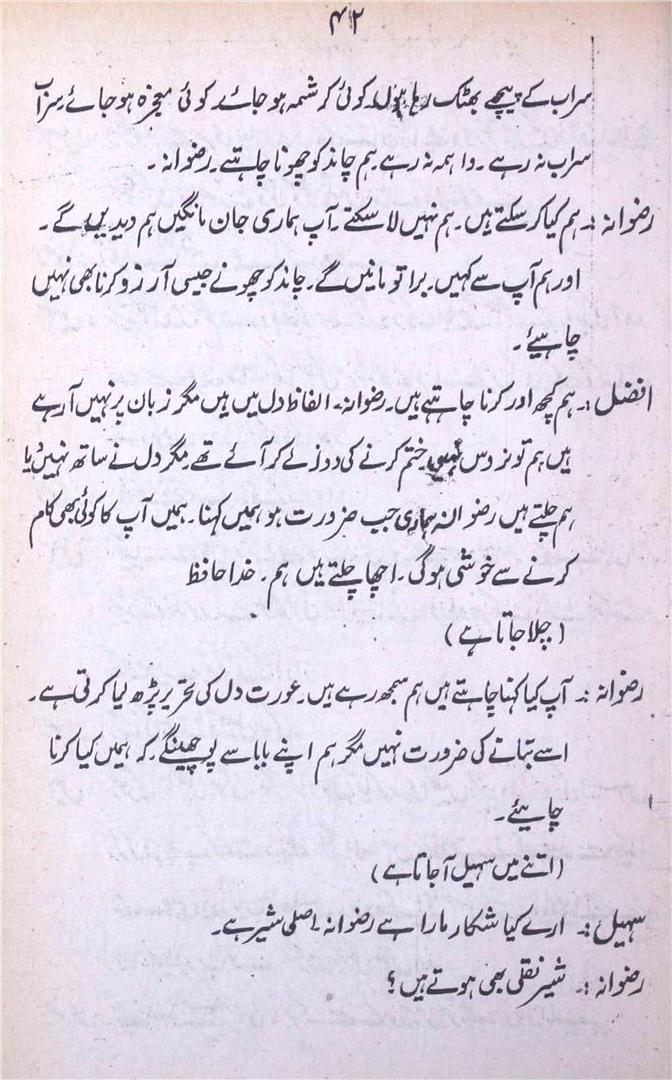 ۴۲
سراب کے پیچھے بھٹک رہا ہوں۔ کوئی کرشمہ ہو جائے۔ کوئی معجزہ ہو جائے۔ سراب
سراب نہ رہے۔ واہمہ نہ رہے۔ ہم چاند کو چھونا چاہتے رضوانہ۔
رضوانہ :۔ ہم کیا کر سکتے ہیں۔ ہم نہیں لا سکتے۔ آپ ہماری جان مانگیں ہم دیدیں گے۔
اور ہم آپ سے کہیں۔ برا تو مانیں گے۔ چاند کو چھونے جیسی آرزو کرنا بھی نہیں
چاہیئے۔
افضل :۔ ہم کچھ اور کرنا چاہتے ہیں۔ رضوانہ۔ الفاظ دل میں ہیں مگر زبان پر نہیں آ رہے
ہیں ہم تو نروس ختم کرنے کی دوا لے کر آئے تھے۔ مگر دل نے ساتھ نہیں دیا
ہم چلتے ہیں رضوانہ ہماری جب ضرورت ہو ہمیں کہنا۔ ہمیں آپ کا کوئی بھی کام
کرنے سے خوشی ہوگی۔ اچھا چلتے ہیں ہم۔ خدا حافظ
(چلا جاتا ہے)
رضوانہ :۔ آپ کیا کہنا چاہتے ہیں ہم سمجھ رہے ہیں۔ عورت دل کی تحریر پڑھ لیا کرتی ہے۔
اسے بتانے کی ضرورت نہیں مگر ہم اپنے بابا سے پوچھینگے۔ کہ ہمیں کیا کرنا
چاہیئے۔
(اتنے میں سہیل آ جاتا ہے)
سہیل :۔ ارے کیا شکار مارا ہے رضوانہ۔ اصلی شیر ہے۔
رضوانہ :۔ شیر نقلی بھی ہوتے ہیں؟